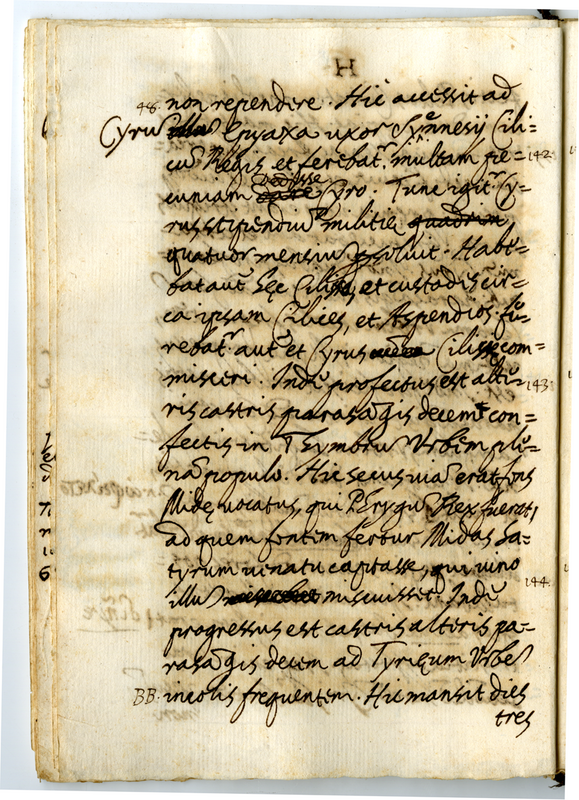 H
48. non rependere. Hic accessit ad
Cyrũ Epyaxa uxor Syẽnnesij Cili=
ciẽ Regis et ferebat.r multam pe= 142.
cuniam dedisse Cyro. Tunc igit.r Cy=
rus stipendiũ militiẽ
quatuor mensiũ psoluit. Habe=
bat autẽ hęc Cilissa et custodes cir=
ca ipsam Cilices, et Aspendios. fe=
rebat.r autẽ et Cyrus Cilissę com=
misceri. Indẽ profectus est alte= 143.
ris castris parasãgis decem con=
fectis in Thymbriũ Urbem ple=
nã populo. Hic secus uiã erat fons
Midę uocatus, qui Phrygũ Rex fuerat,
ad quem fontem fertur Midas Sa=
tyrum uenatu capitasse, qui uino
illũ miscuisset. Indẽ 144.
progressus est castris alteris pa=
rasãgis decem ad Tyrięum Urbẽ
BB. incolis frequentem. Hic mansit dies
tres